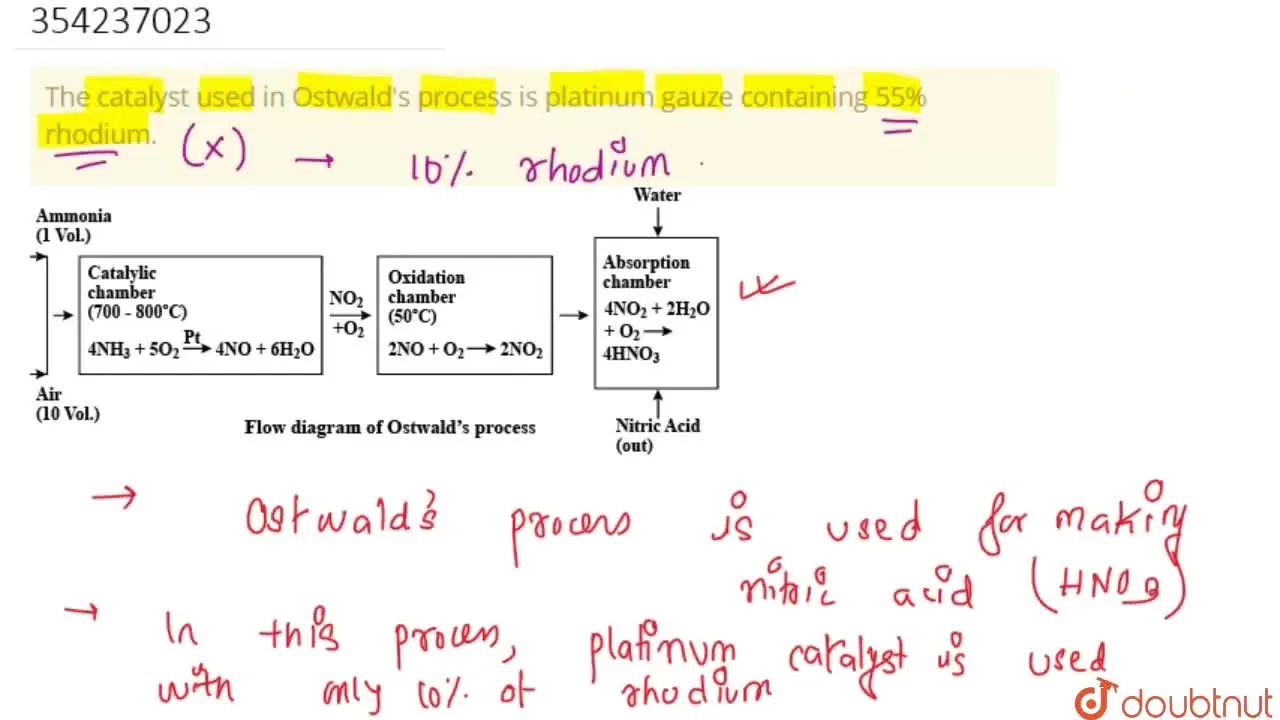 354237023
The catalyst used in Ostwald's process is platinum gauze containing 55%
rhodium. (x) → 10% rhodium
Water
Ammonia
(1 Vol.)
Catalylic
chamber
(700 - 800°C)
Pt
4NH₃ + 5O₂ → 4NO + 6H₂O
NO₂
+O₂
Oxidation
chamber
(50°C)
2NO + O₂ → 2NO₂
Absorption
chamber
4NO₂ + 2H₂O
+ O₂ →
4HNO₃
Air
(10 Vol.)
Flow diagram of Ostwald's process
Nitric Acid
(out)
→ Ostwald's process is used for making
nitric acid (HNO₃)
→ In this process, platinum catalyst is used
with only 10% of rhodium
doubtnut